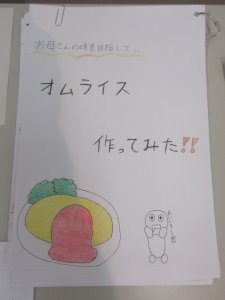 お母さんの味を目指して…
オムライス
作ってみた!!